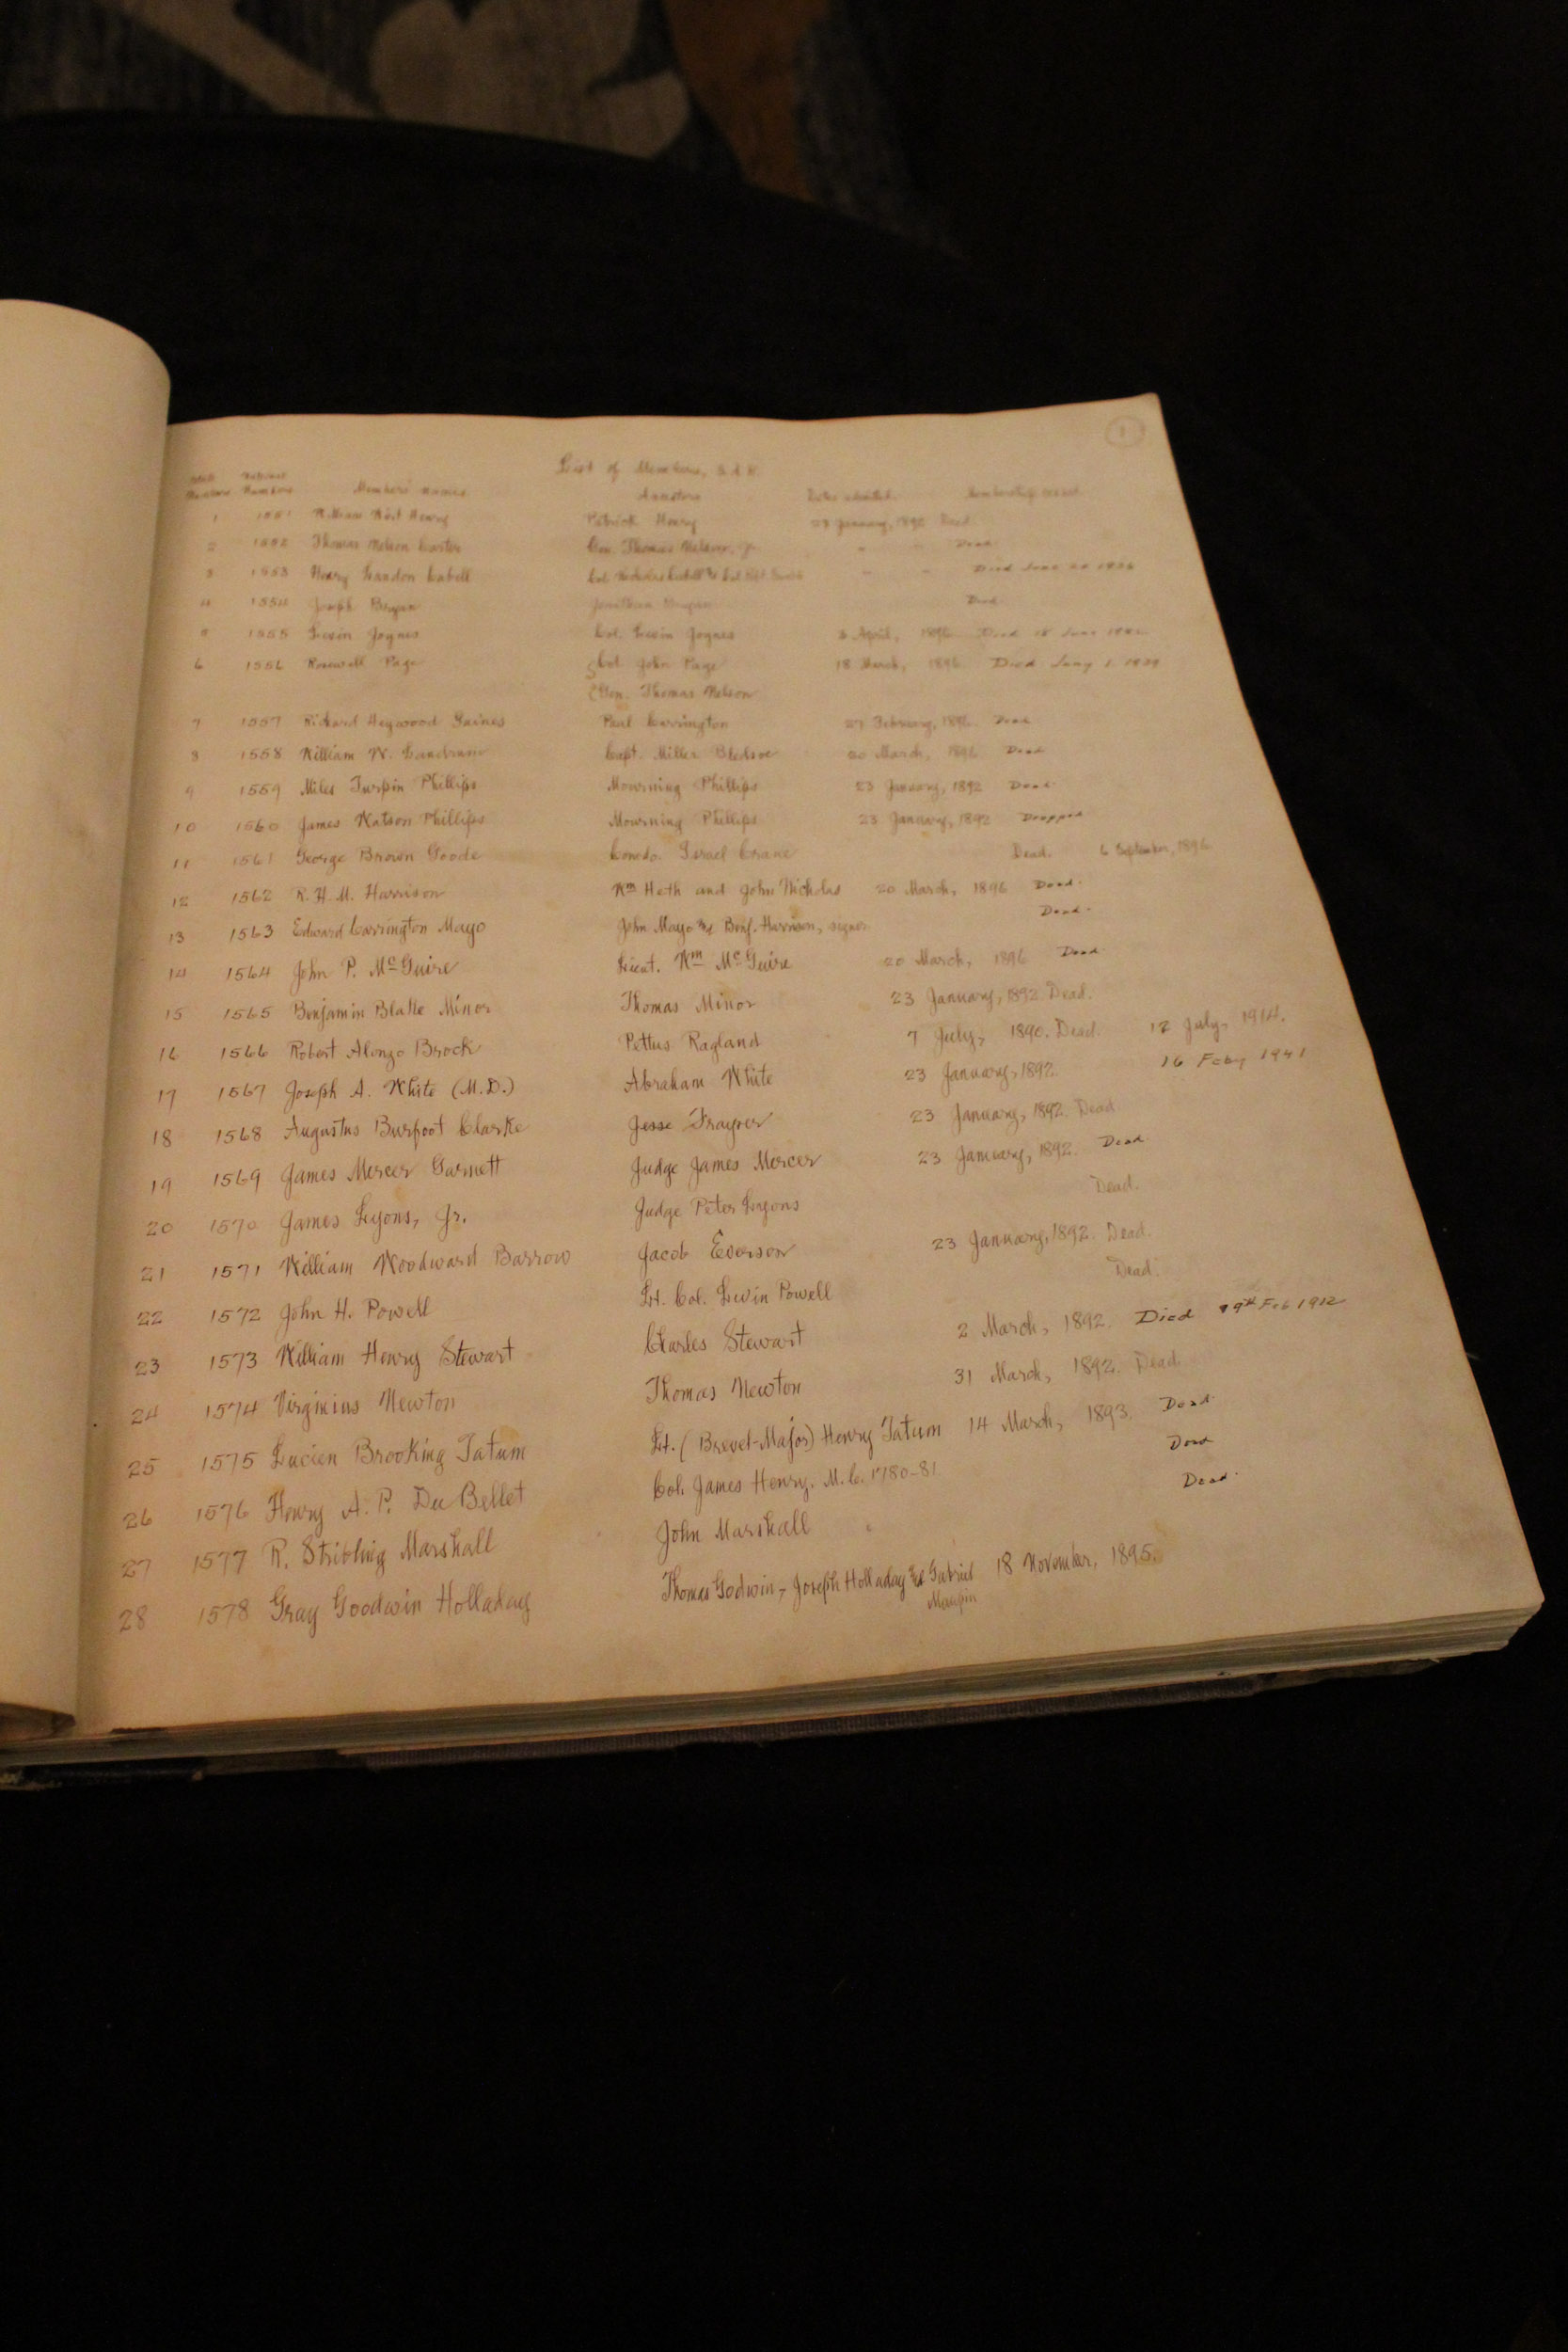 1
List of Members, S A R
State National
Number Number Members' names Ancestors Dates admitted Membership ceased
1 1551 William Wirt Henry Patrick Henry 23 January, 1892 Dead
2 1552 Thomas Nelson Carter Gen. Thomas Nelson, Jr " " Dead
3 1553 Henry Landon Cabell Col. Nicholas Cabell & Col. " " Died June
4 1554 Joseph Bryan Jonathan Bryan Dead
5 1555 Levin Joynes Col. Levin Joynes 3 April, 1896 Died 18 June
6 1556 Rosewell Page Col. John Page 18 March, 1896 Died Jany 1. 1939
Gen. Thomas Nelson
7 1557 Richard Heywood Gaines Paul Carrington 27 February, 1896 Dead
8 1558 William W. Landrum Capt. Miller Bledsoe 20 March, 1896 Dead
9 1559 Miles Turpin Phillips Mourning Phillips 23 January, 1892 Dead
10 1560 James Watson Phillips Mourning Phillips 23 January, 1892 Dropped
11 1561 George Brown Goode Comdo. Israel Crane Dead. 6 September, 1896
12 1562 R. H. M. Harrison Wm Heth and John Nicholas 20 March, 1896 Dead.
13 1563 Edward Carrington Mayo John Mayo and Benj. Harrison, signer Dead.
14 1564 John P. McGuire Lieut. Wm McGuire 20 March, 1896 Dead
15 1565 Benjamin Blake Minor Thomas Minor 23 January, 1892. Dead.
16 1566 Robert Alonzo Brock Pettus Ragland 7 July, 1890. Dead. 12 July, 1914.
17 1567 Joseph A. White (M.D.) Abraham White 23 January, 1892. 16 Feby 1941
18 1568 Augustus Burfoot Clarke Jesse Frayser 23 January, 1892. Dead
19 1569 James Mercer Garnett Judge James Mercer 23 January, 1892. Dead
20 1570 James Lyons, Jr. Judge Peter Lyons Dead.
21 1571 William Woodward Barrow Jacob Everson 23 January, 1892. Dead.
22 1572 John H. Powell Lt. Col. Levin Powell Dead.
23 1573 William Henry Stewart Charles Stewart 2 March, 1892. Died Feb 1912
24 1574 Virginius Newton Thomas Newton 31 March, 1892. Dead
25 1575 Lucien Brooking Tatum Lt. (Brevet-Major) Henry Tatum 14 March, 1893. Dead
26 1576 Henry A. P. Du Bellet Col. James Henry. M. C. 1780-81 Dead
27 1577 R. Stribling Marshall John Marshall Dead.
28 1578 Gray Goodwin Holladay Thomas Godwin, Joseph Holladay and Gabriel 18 November, 1895.
Maupin